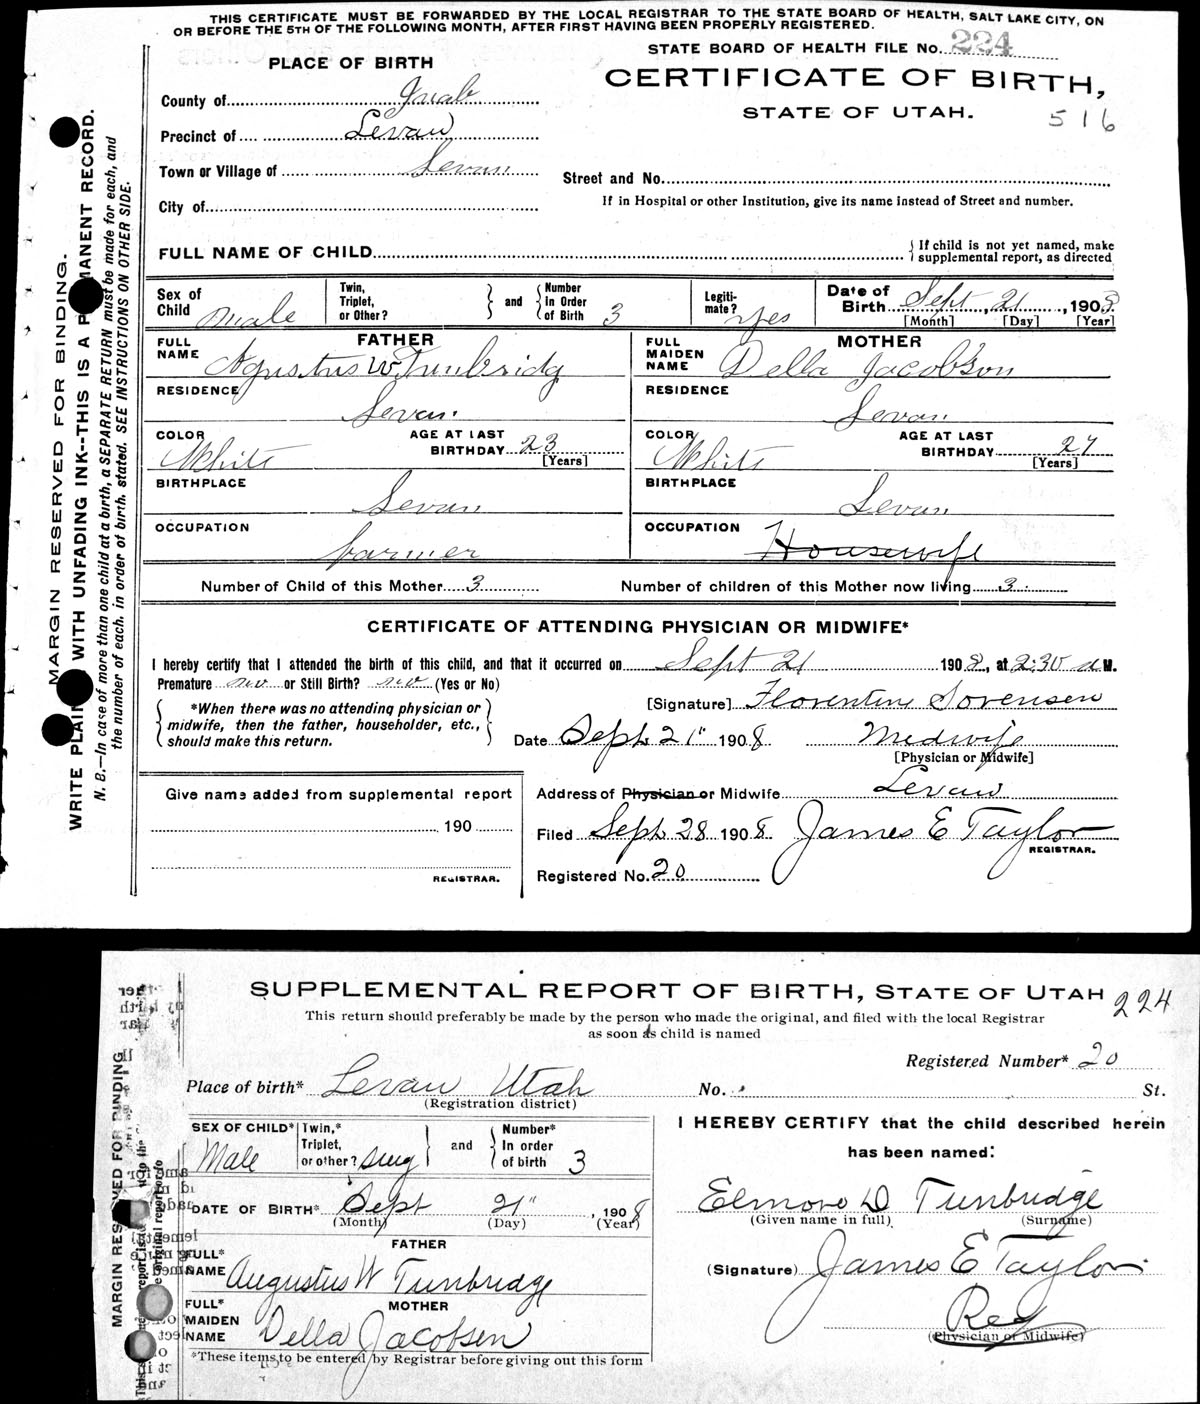 THIS CERTIFICATE MUST BE FORWARDED BY THE LOCAL REGISTRAR TO THE STATE BOARD OF HEALTH, SALT LAKE CITY, ON
OR BEFORE THE 5TH OF THE FOLLOWING MONTH, AFTER FIRST HAVING BEEN PROPERLY REGISTERED.
STATE BOARD OF HEALTH FILE No. 224
PLACE OF BIRTH
CERTIFICATE OF BIRTH,
STATE OF UTAH.
516
County of Juab
Precinct of Levan
Town or Village of Levan
Street and No.
City of
If in Hospital or other Institution, give its name instead of Street and number.
FULL NAME OF CHILD
If child is not yet named, make
supplemental report, as directed
Sex of Child Male Twin, Triplet, or Other? and Number In Order of Birth 3 Legiti-mate? Yes Date of Birth Sept 21, 1908
[Month] [Day] [Year]
FATHER MOTHER
FULL NAME Agustus W Tunbridg FULL MAIDEN NAME Della Jacobson
RESIDENCE Levan RESIDENCE Levan
COLOR White AGE AT LAST BIRTHDAY 23 [Years] COLOR White AGE AT LAST BIRTHDAY 27 [Years]
BIRTHPLACE Levan BIRTHPLACE Levan
OCCUPATION farmer OCCUPATION Housewife
Number of Child of this Mother 3 Number of children of this Mother now living 3
CERTIFICATE OF ATTENDING PHYSICIAN OR MIDWIFE*
I hereby certify that I attended the birth of this child, and that it occurred on Sept 21 1908, at 2:30 a M.
Premature no or Still Birth? no (Yes or No)
[Signature] Florentine Sorensen
*When there was no attending physician or
midwife, then the father, householder, etc.,
should make this return.
Date Sept 21" 1908 Midwife
[Physician or Midwife]
Give name added from supplemental report
Address of Physician or Midwife Levan
190
Filed Sept 28 1908 James E Taylor
REGISTRAR.
Registered No. 20
REGISTRAR.
MARGIN RESERVED FOR BINDING.
WRITE PLAIN WITH UNFADING INK--THIS IS A P MANENT RECORD.
N. B.—In case of more than one child at a birth, a SEPARATE RETURN must be made for each, and
the number of each, in order of birth, stated. SEE INSTRUCTIONS ON OTHER SIDE.
SUPPLEMENTAL REPORT OF BIRTH, STATE OF UTAH 224
This return should preferably be made by the person who made the original, and filed with the local Registrar
as soon as child is named
Registered Number* 20
Place of birth* Levan Utah No. St.
(Registration district)
SEX OF CHILD* Male Twin,* Triplet, or other? sing and Number* In order of birth 3
I HEREBY CERTIFY that the child described herein
has been named:
DATE OF BIRTH* Sept 21", 1908
(Month) (Day) (Year)
Elmore D Tunbridge
(Given name in full) (Surname)
FATHER
FULL* NAME Augustus W Tunbridge
(Signature) James E Taylor
Reg
(Physician or Midwife)
MOTHER
FULL* MAIDEN NAME Della Jacobsen
*These items to be entered by Registrar before giving out this form
MARGIN RES VED FOR BINDING